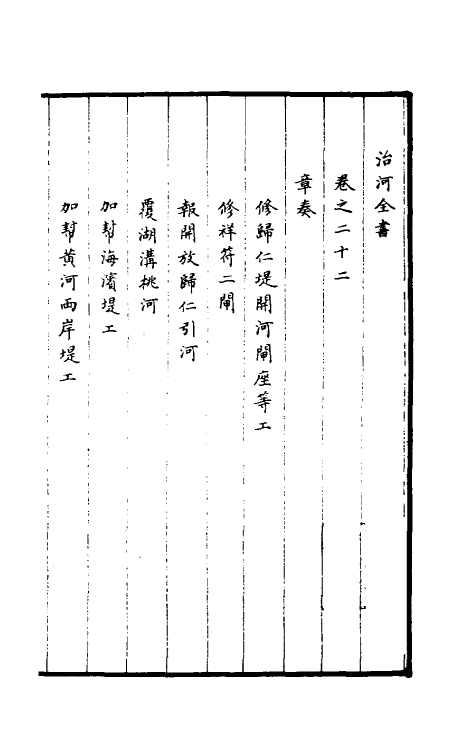 治河全書
卷之二十二
章奏
修歸仁堤開河閘座等工
修祥符二閘
報開放歸仁引河
覆湖溝桃河
加幇海濱堤工
加幇黃河兩岸堤工